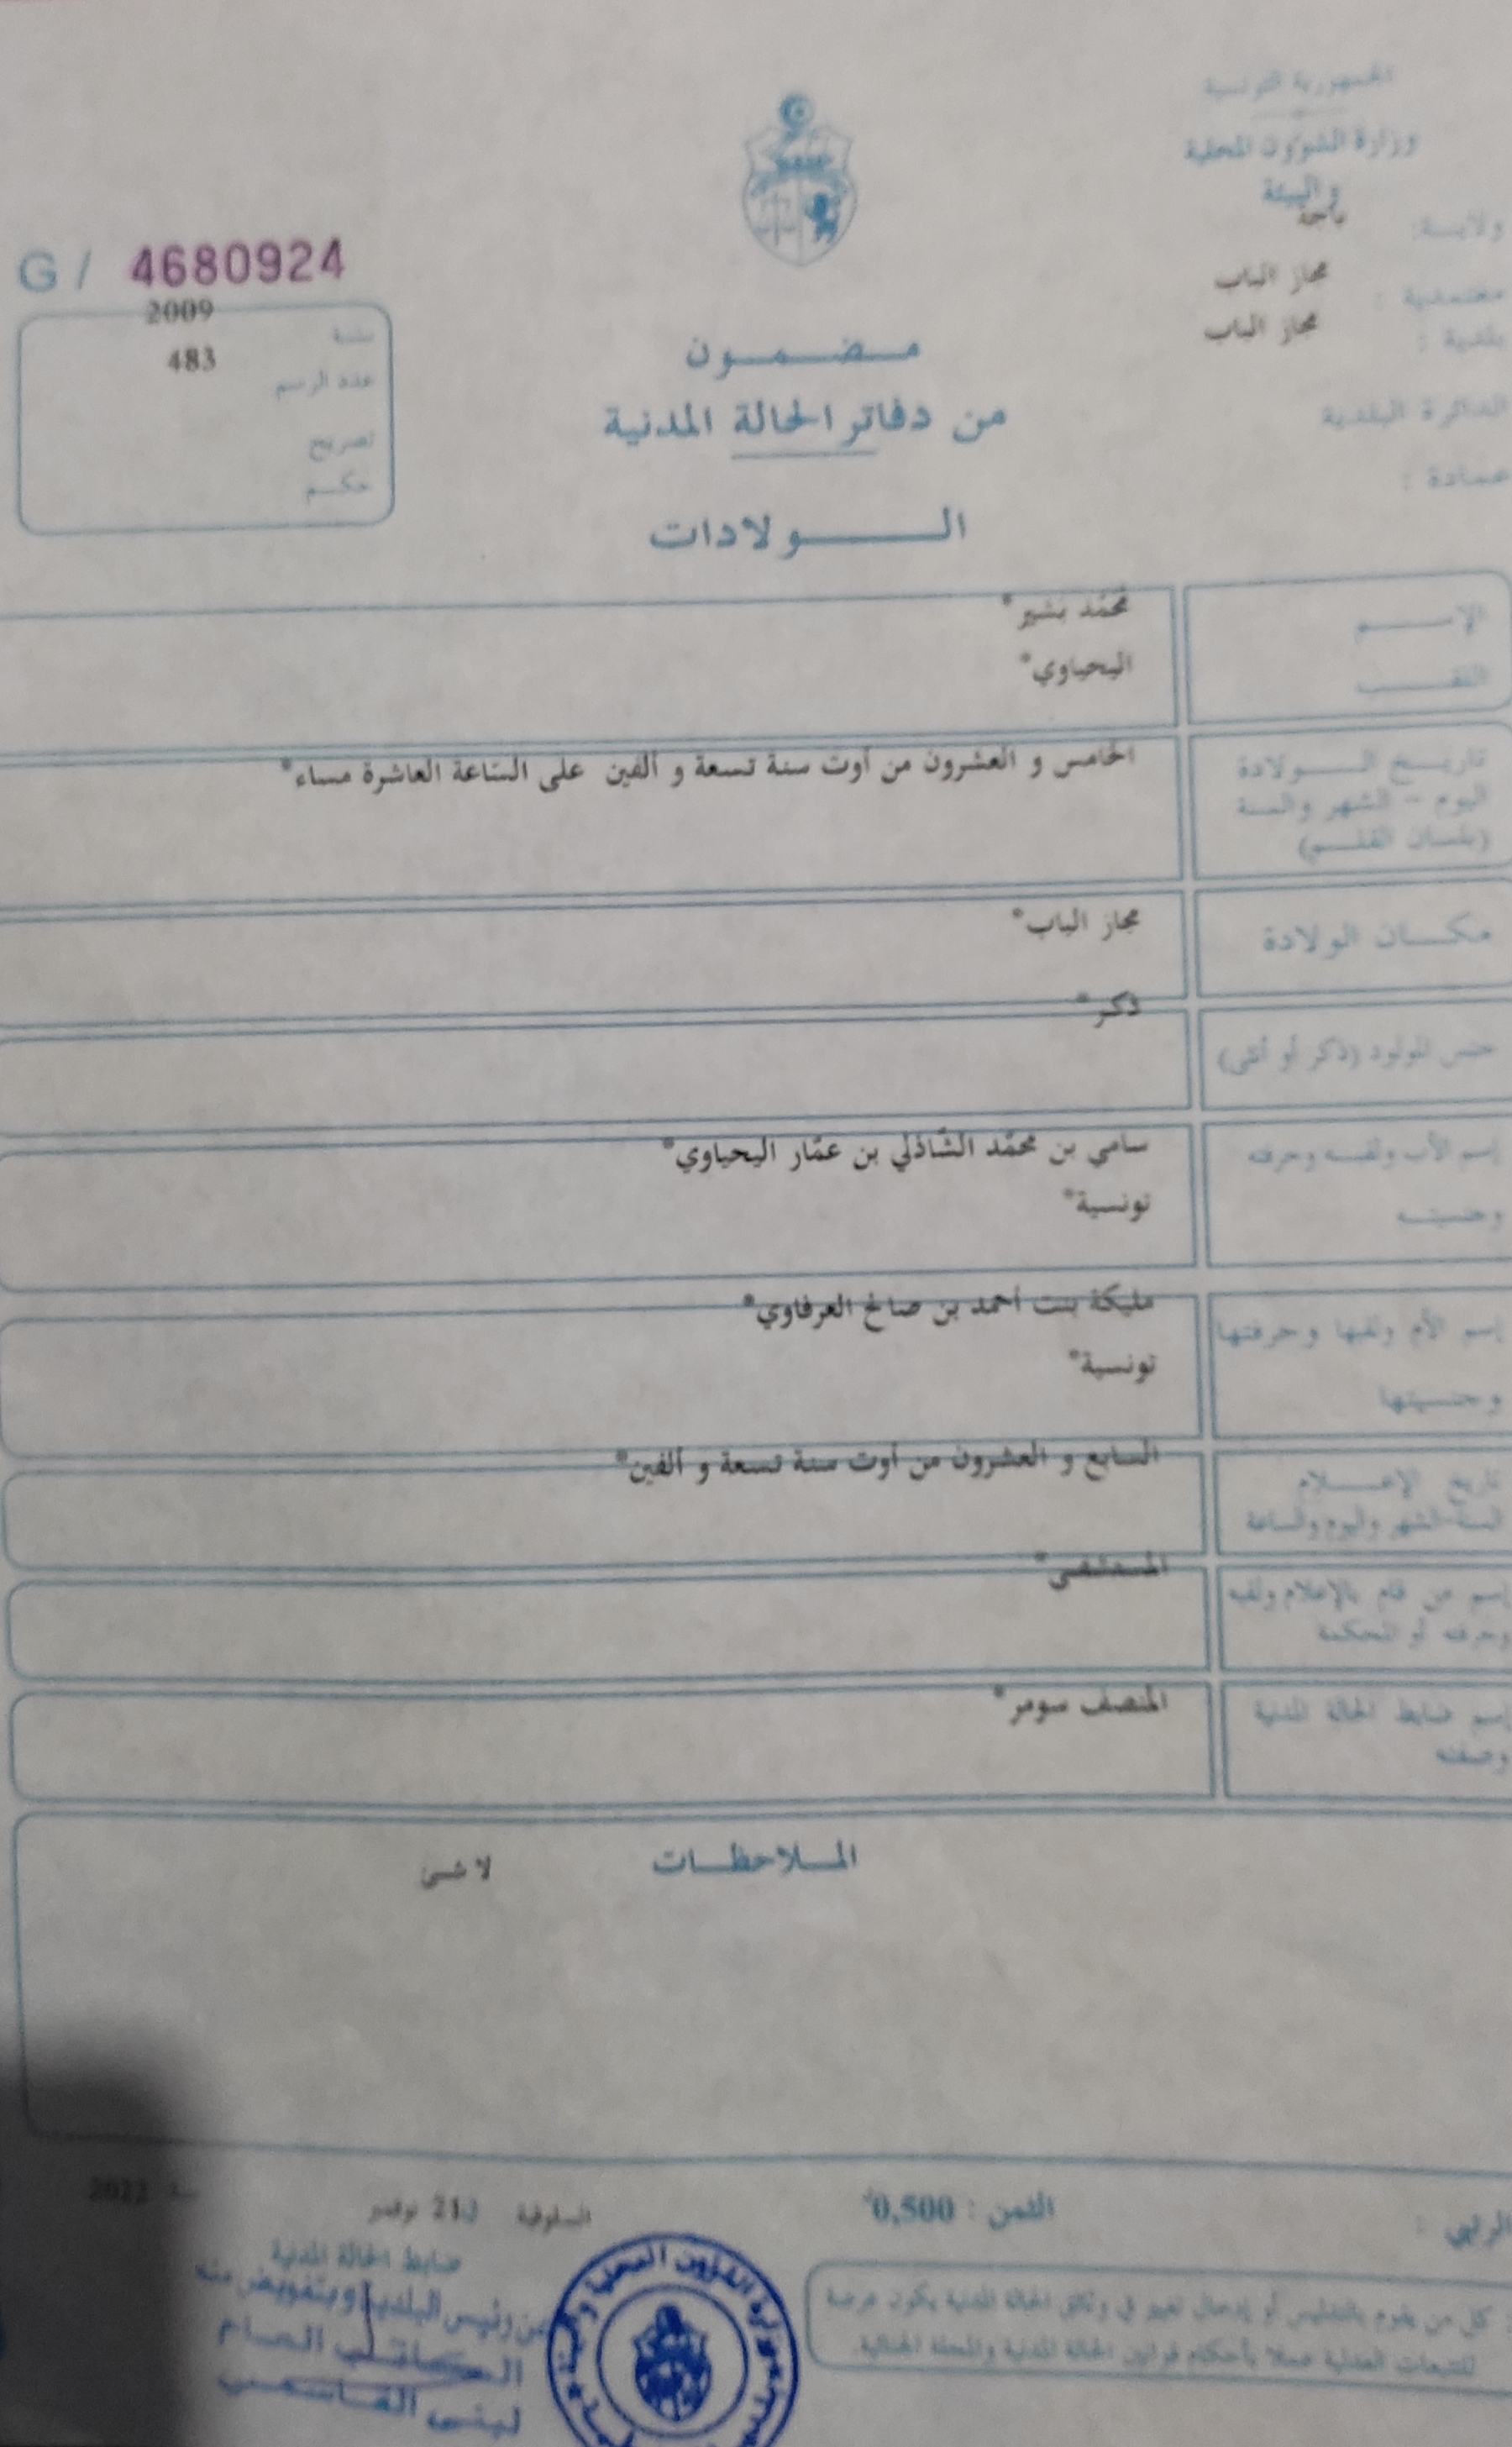 الجمهورية التونسية
وزارة الشؤون المحلية
والبيئة
ولايـة: باجة
معتمدية : مجاز الباب
بلدية : مجاز الباب
الدائرة البلدية
عمادة :
G / 4680924
سنة 2009
عدد الرسم 483
تصريح
حكـم
مـضـمـون
من دفاتر الحالة المدنية
الـولادات
الإسـم محمّد بشير*
اللقـب اليحياوي*
تاريـخ الـولادة
اليوم - الشهر والسنة
(بلسان القلـم)
الخامس و العشرون من أوت سنة تسعة و ألفين على السّاعة العاشرة مساء*
مكـان الولادة مجاز الباب*
جنس المولود (ذكر أو أنثى) ذكر*
إسم الأب ولقبـه وحرفته سامي بن محمّد الشّاذلي بن عمّار اليحياوي*
وجنسيتـه تونسية*
إسم الأم ولقبها وحرفتها مليكة بنت أحمد بن صالح العرفاوي*
وجنسيتها تونسية*
تاريخ الإعـلام
السنة-الشهر واليوم والساعة
السابع و العشرون من أوت سنة تسعة و ألفين*
إسم من قام بالإعلام ولقبه
وحرفته أو المحكمة
المستشفى*
إسم ضابط الحالة المدنية
وصفته
المنصف سومر*
المـلاحظـات
لا شئ
الثمن : 0,500
السلوقية 21 نوفمبر سنة 2022
ضابط الحالة المدنية
عن رئيس البلدية وبتفويض منه
الكاتب العام
لبنى القاسمي
كل من يقوم بالتدليس أو إدخال تغيير في وثائق الحالة المدنية يكون عرضة
للتتبعات العدلية عملا بأحكام قوانين الحالة المدنية والمجلة الجنائية.
وزارة الشؤون المحلية والبيئة